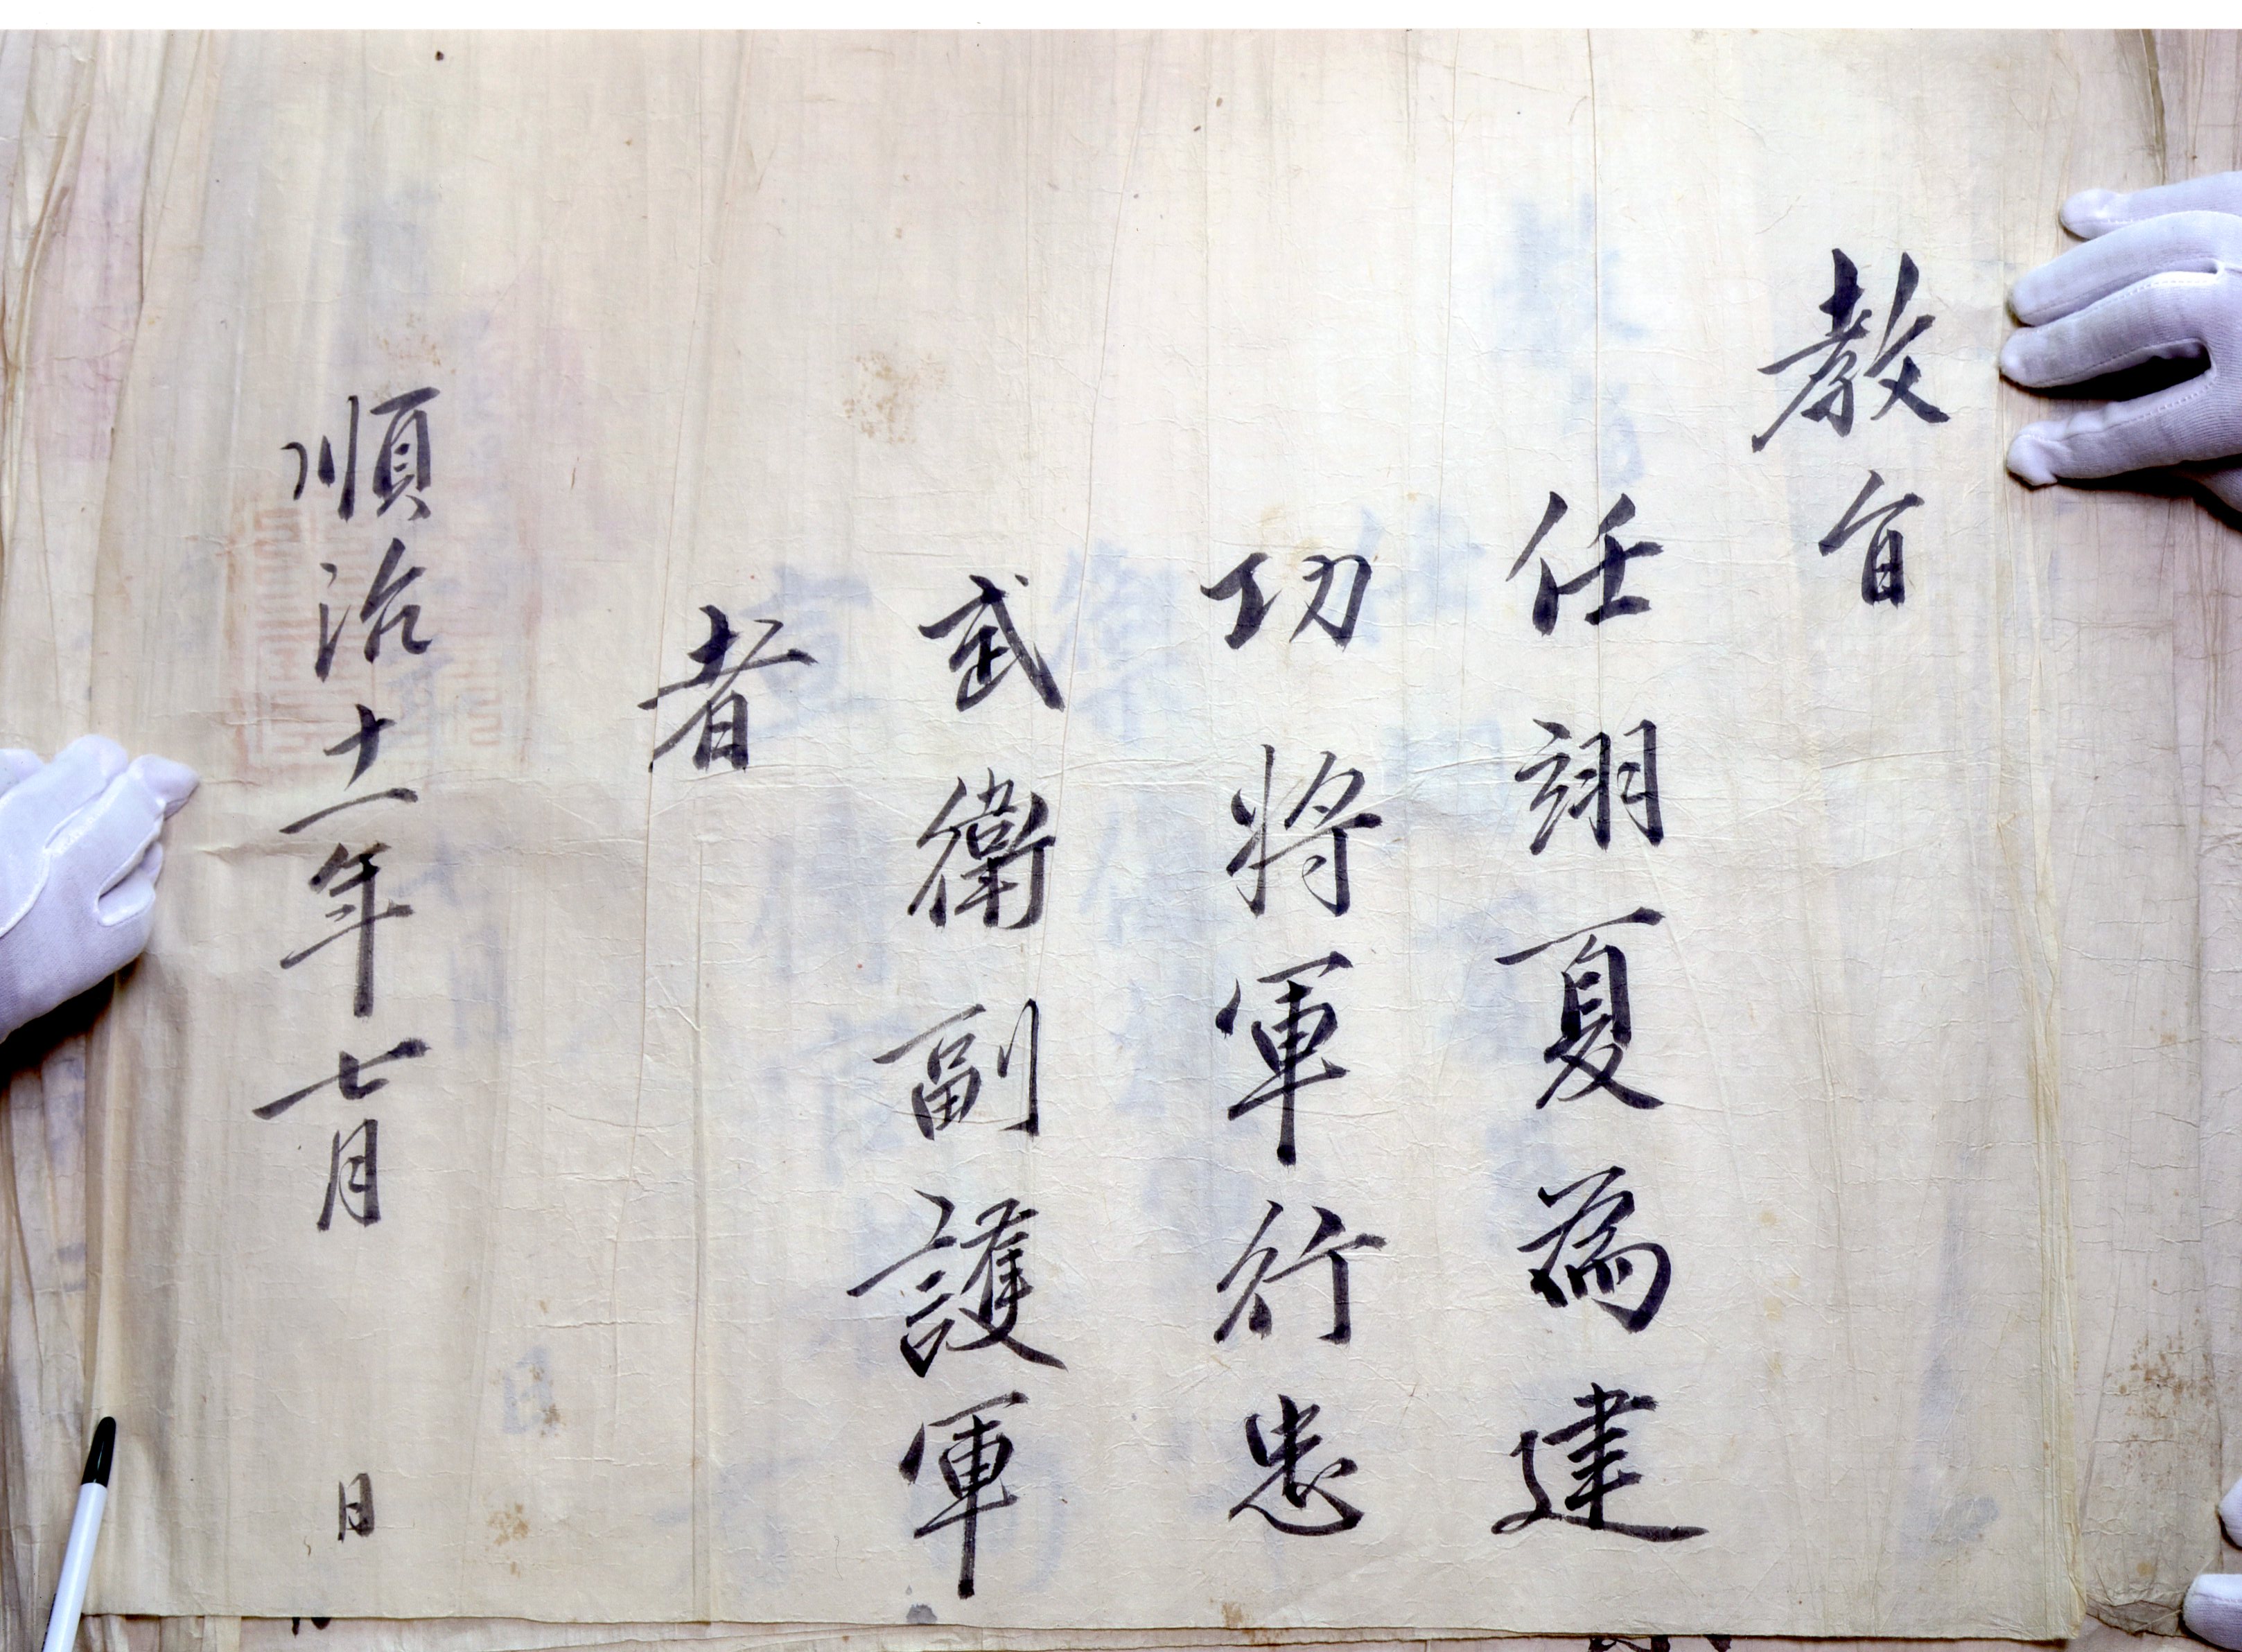 教旨
任翊夏為建
功將軍行忠
武衛副護軍
者
順治十一年七月 日